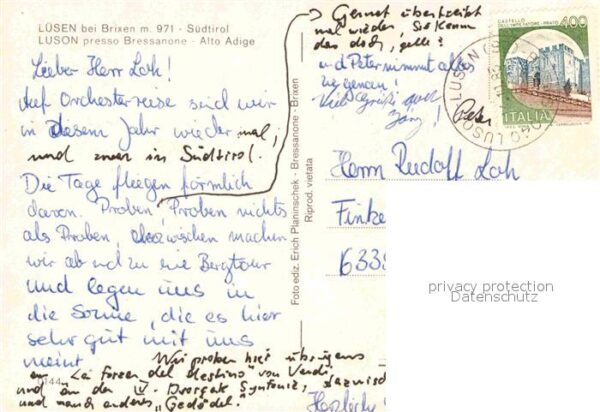 LÜSEN bei Brixen m. 971 - Südtirol
LUSON presso Bressanone - Alto Adige
Lieber Herr Loh!
Auf Orchesterreise sind wir
in diesem Jahr wieder mal,
und zwar in Südtirol.
Die Tage fliegen förmlich
davon. Proben, Proben nichts
als Proben, dazwischen machen
wir ab und zu eine Bergtour
und legen uns in
die Sonne, die es hier
sehr gut mit uns
meint.
Wir proben hier übrigens
an "La forza del destino" von Verdi
und an der IV. Dvorzak Synfonie, dazwisch
und manch anderes "Gedödel".
Herzliche
Gernot übertreibt
mal wieder, Sie kennen
das doch, gelle?
und Peter nimmt alles
zu genau!
Viele Grüße
Peter
Foto ediz. Erich Planinschek - Bressanone - Brixen
Riprod. vietata
CASTELLO
DELL'IMPERATORE - PRATO
400
ITALIA
LUSON LÜSEN
Herrn Rudolf Loh
Finke
6339
privacy protection
Datenschutz
144